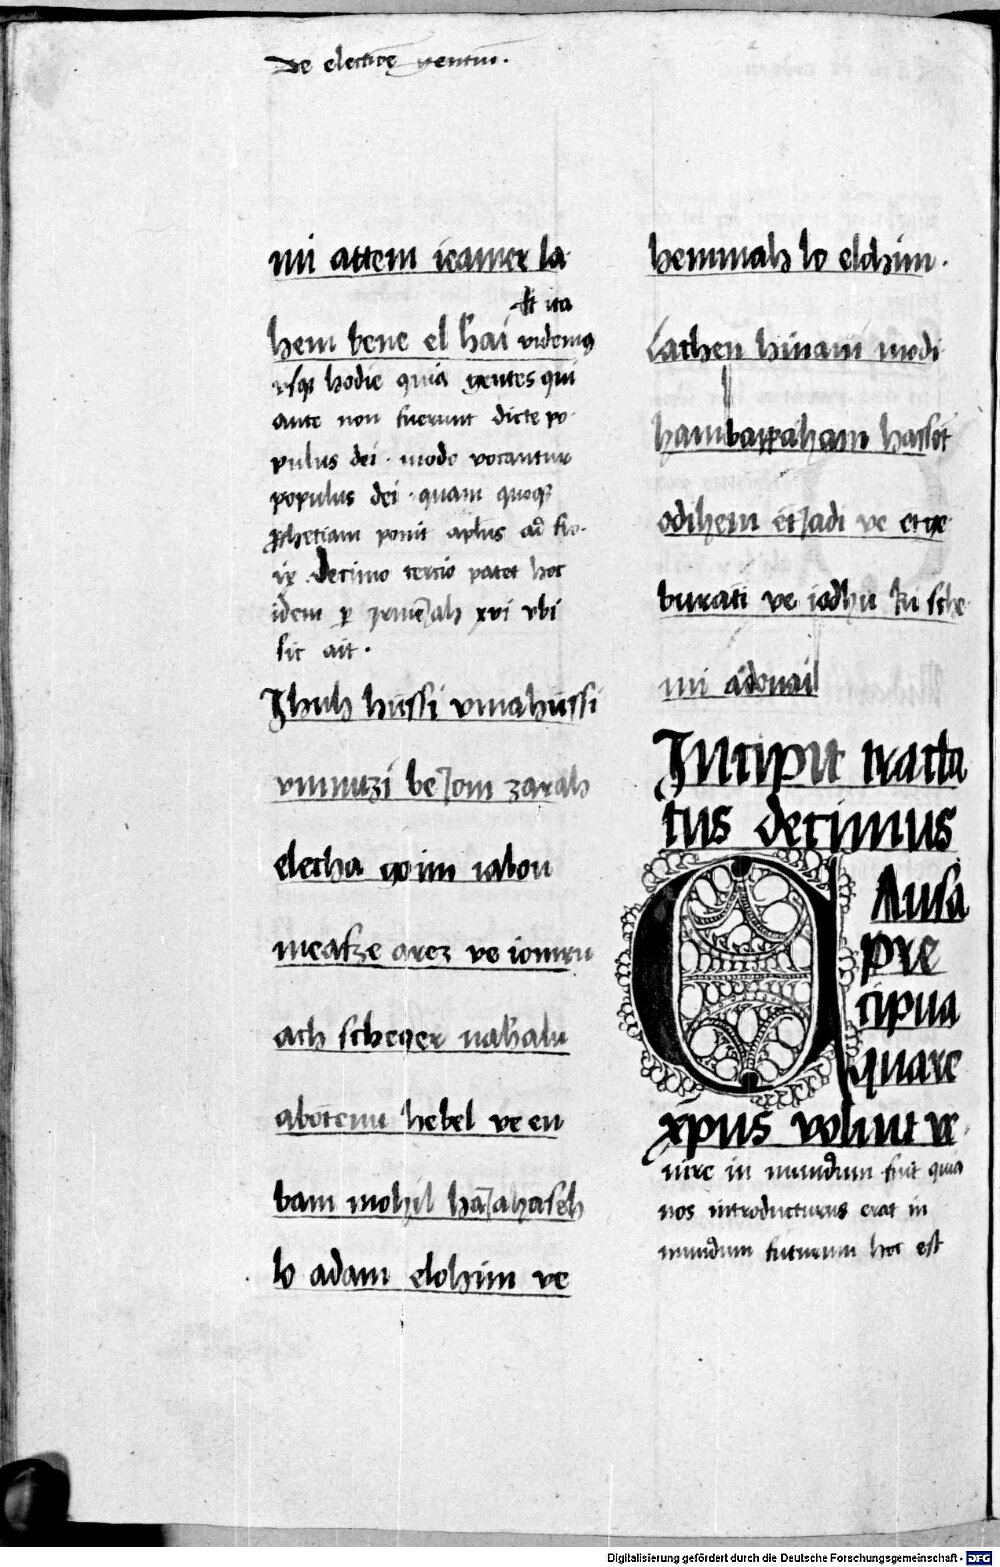 De electiõe gentiũ.
mi attem ieamer la
hem bene el hai
Et ita
videmus
vsqꝫ hodie quia gentes qui
ante non fuerunt dicte po
pulus dei · modo vocantur
populus dei · quam quoqꝫ
ꝓphetiam ponit apl̃us ad Ro.
ix decimo tercio patet hoc
idem ꝑ xvi vbi
sic ait ·
Jhuh hussi vmahussi
vmnuzi be⁊om zarah
elecha goim iabou
meafze arez ve iomru
ach scheqer nahalu
abotenu hebel ve en
bam mohil ha⁊ahaseh
lo adam elohim ve
hemmah lo elohim ·
Lachen hinani modi
ham bappaham hassot
odihem et ⁊adi ve et ge
burati ve iadhu ki sche
mi adonai
Incipit tracta
tus decimus
Causa
pre
cipua
quare
xp̃us voluit ve
nire in mundum fuit quia
nos introducturus erat in
mundum futurum hoc est
Digitalisierung gefördert durch die Deutsche Forschungsgemeinschaft - DFG